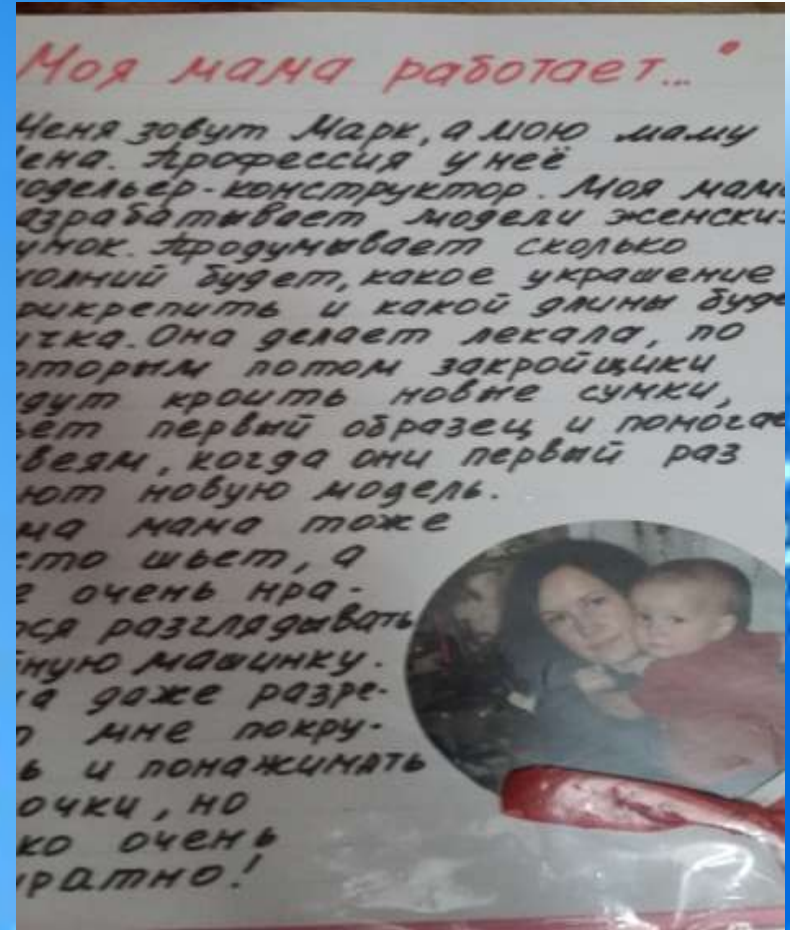 Моя мама работает...
Меня зовут Марк, а мою маму
ена. Профессия у неё
одельер-конструктор. Моя мама
азрабатывает модели женских
умок. Продумывает сколько
молний будет, какое украшение
рикрепить и какой длины буде
учка. Она делает лекала, по
оторым потом закройщики
удут кроить новые сумки,
ьёт первый образец и помогае
веям, когда они первый раз
ют новую модель.
ма мама тоже
сто шьет, а
е очень нра-
тся разглядывать
йную машинку.
на даже разре-
т мне покру-
ь и понажимать
очки, но
ко очень
уратно!